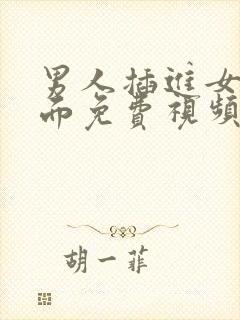 男人插進女
而免費視頻
胡一菲